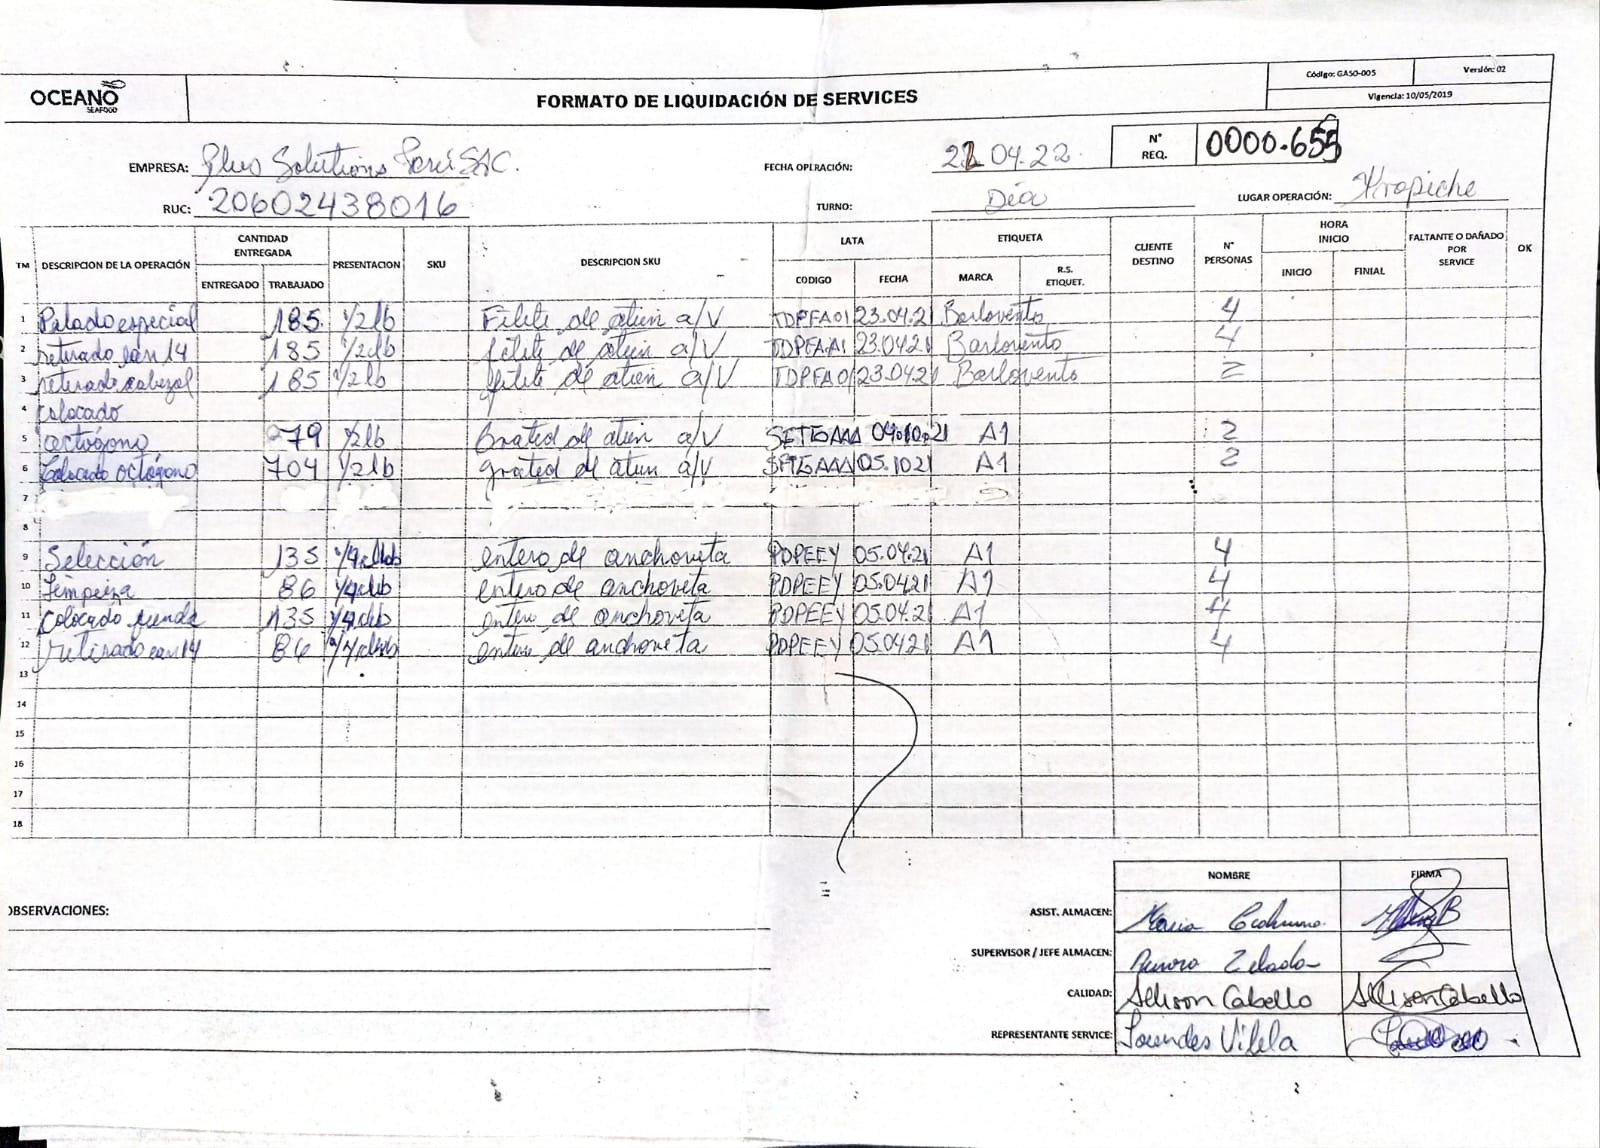 OCEANO
SEAFOOD
FORMATO DE LIQUIDACIÓN DE SERVICES
Código: GASO-005 Versión: 02
Vigencia: 10/05/2019
EMPRESA: Plus Solutions Perú SAC.
FECHA OPERACIÓN: 22 04.22.
N° REQ. 0000.655
RUC: 20602438016
TURNO: Día
LUGAR OPERACIÓN: Xtrapiche
TM DESCRIPCION DE LA OPERACIÓN CANTIDAD ENTREGADA PRESENTACION SKU DESCRIPCION SKU LATA ETIQUETA CLIENTE DESTINO N° PERSONAS HORA INICIO FALTANTE O DAÑADO POR SERVICE OK
ENTREGADO TRABAJADO CODIGO FECHA MARCA R.S. ETIQUET. INICIO FINIAL
1 Paladoespecial 185. 1/2 lb Filete de atún a/V TDPFA01 23.04.21 Barlovento 4
2 retirado can 14 185 1/2 lb filete de atún a/V TDPFAA1 23.0421 Barlovento 4
3 retirado cabezal 185 1/2 lb filete de atún a/V TDPFA01 23.0421 Barlovento 2
4 colocado
5 octógono 279 1/2 lb Grated de atún a/V SETGAAA 04.10.21 A1 2
6 Colocado octógono 704 1/2 lb grated de atún a/V SETGAAA 05.1021 A1 2
7
8
9 Selección 135 1/4 club entero de anchoveta PDPEEY 05.04.21 A1 4
10 Limpieza 86 1/4 club entero de anchoveta PDPEEY 05.0421 A1 4
11 Colocado funda 135 1/4 club entero de anchoveta PDPEEY 05.04.21 A1 4
12 retirado can 14 86 1/4 club entero de anchoveta PDPEEY 05.0421 A1 4
13
14
15
16
17
18
NOMBRE FIRMA
OBSERVACIONES:
ASIST. ALMACEN: Maria
SUPERVISOR / JEFE ALMACEN: Zelada
CALIDAD: Allison Cabello Allison Cabello
REPRESENTANTE SERVICE: Lourdes Vilela